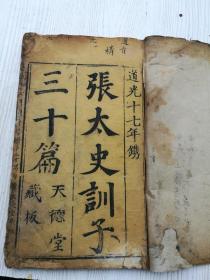 道光十七年鐫
張太史訓子
三十篇
天德堂
藏板